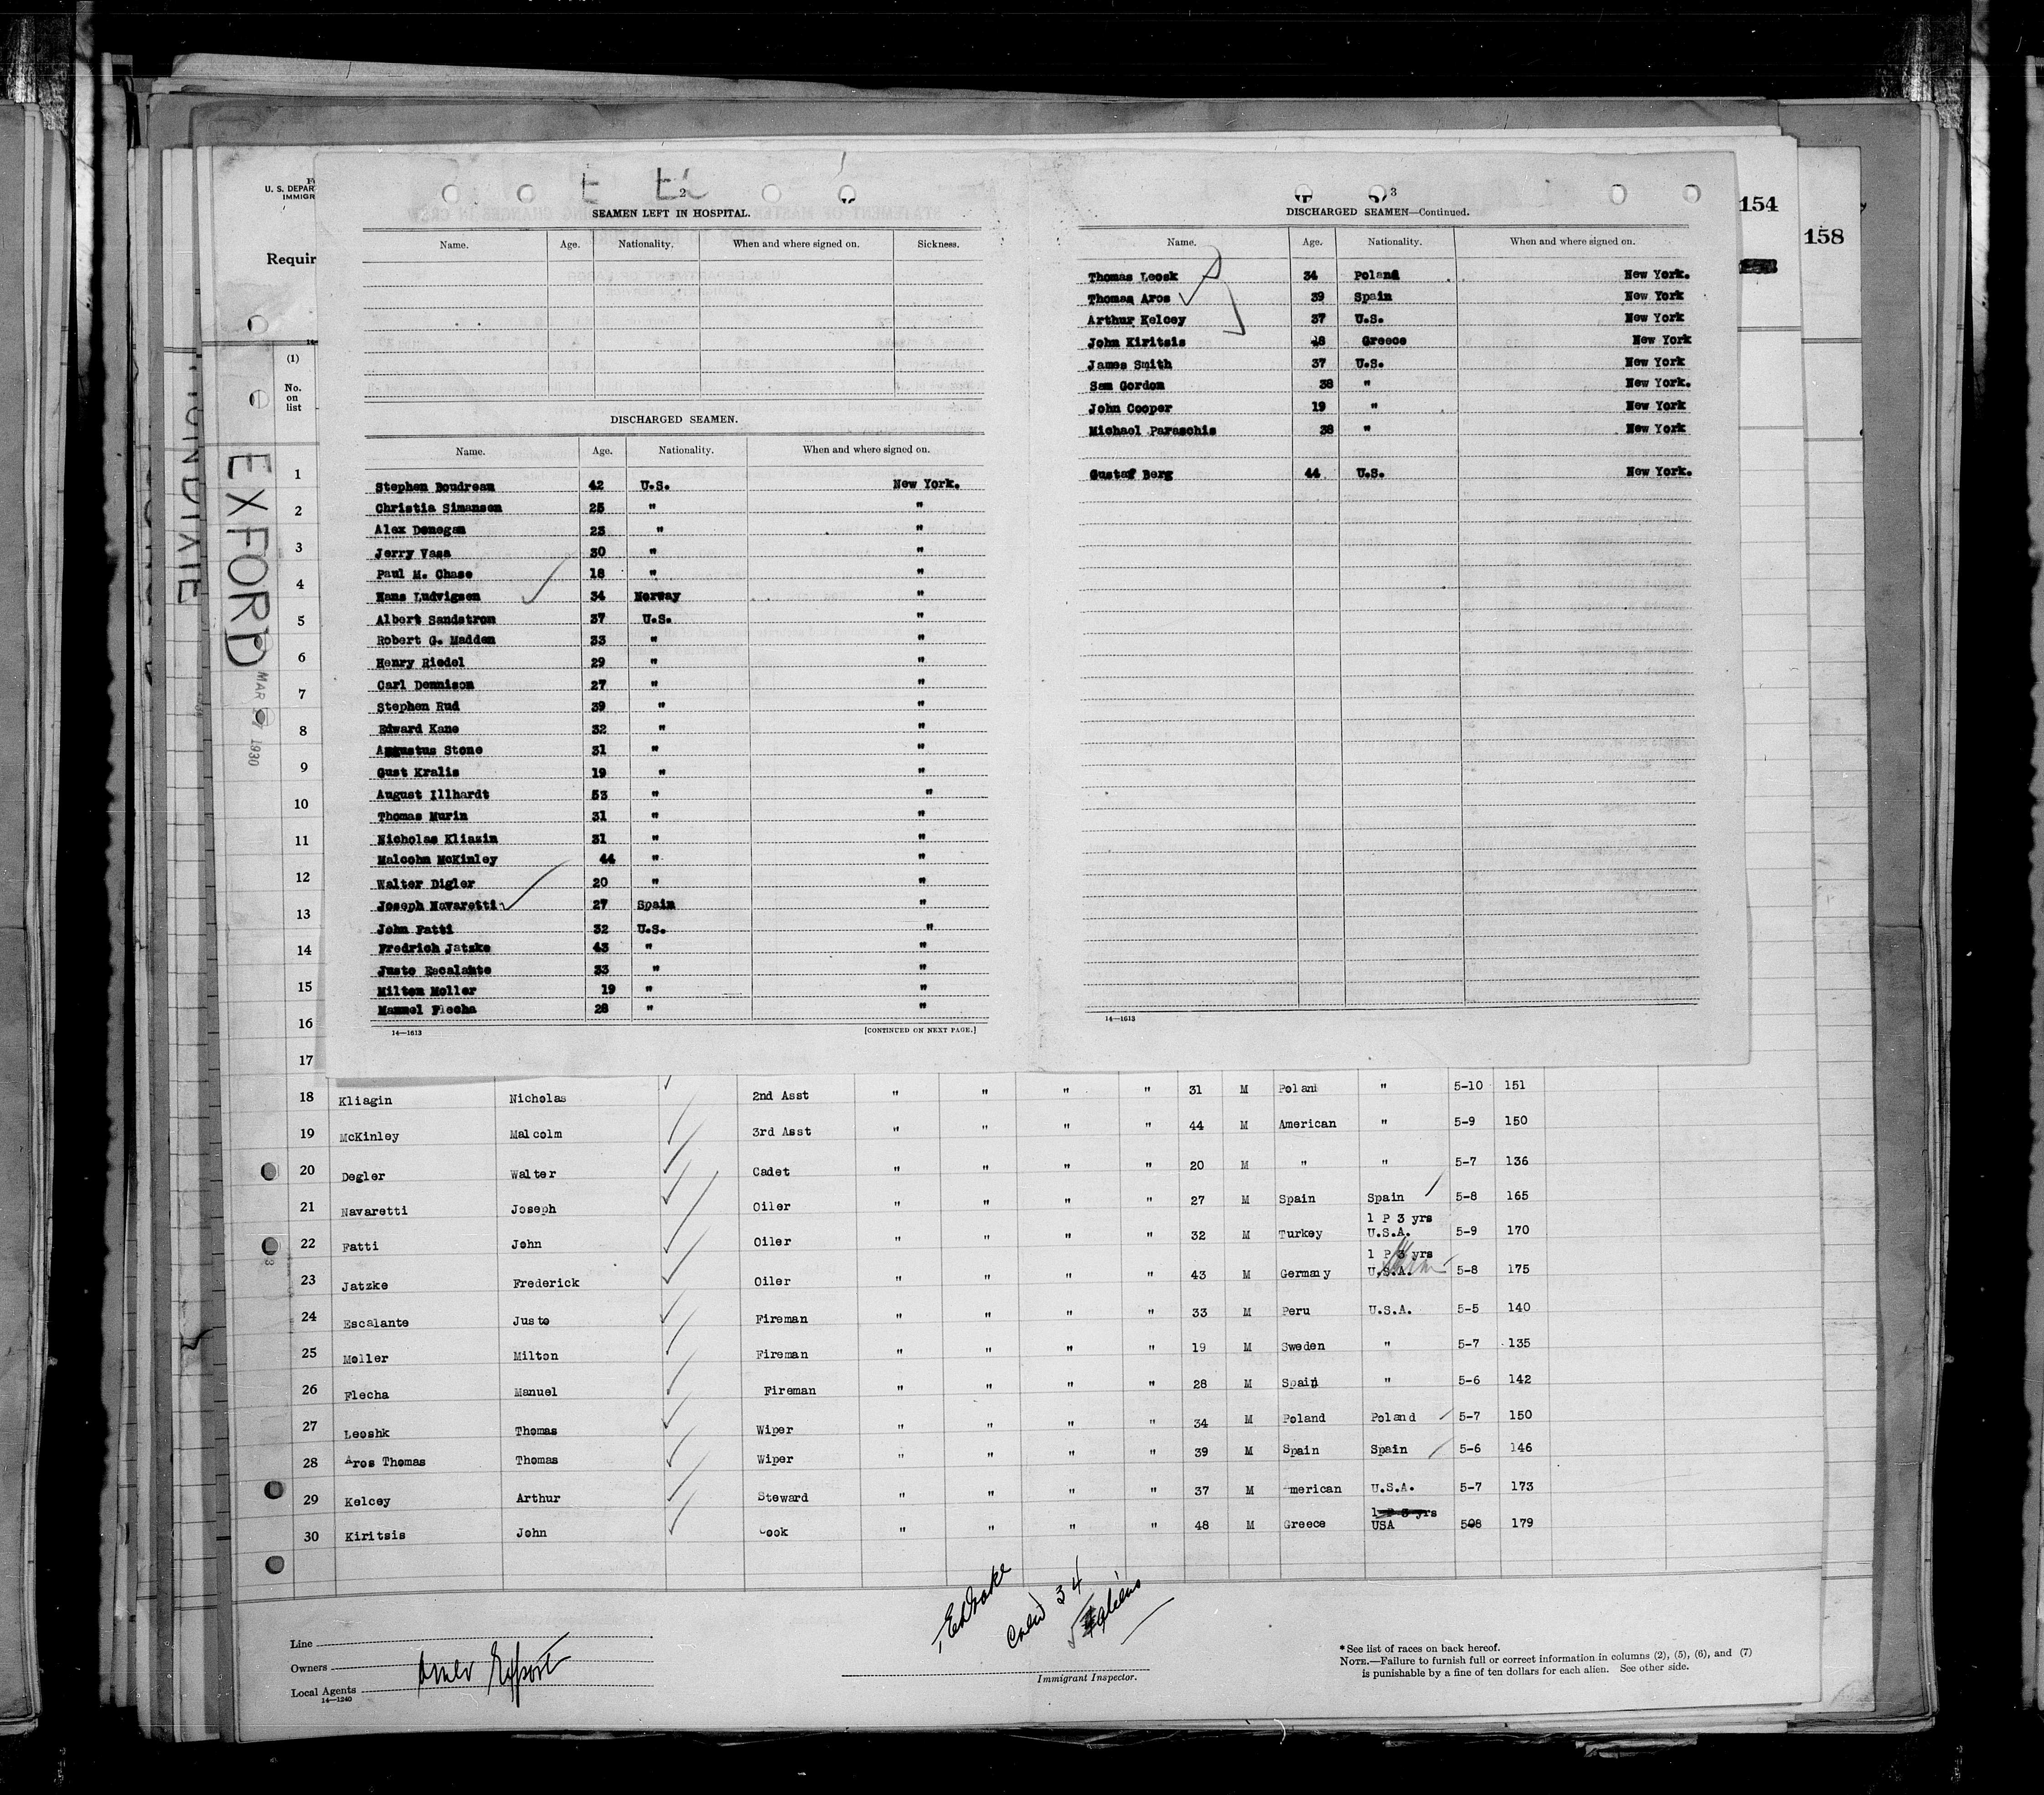 U. S. DEPAR
IMMIGR
Requir
154
158
(1)
No.
on
list
EXFORD
MAR 1930
2
SEAMEN LEFT IN HOSPITAL.
Name. Age. Nationality. When and where signed on. Sickness.
DISCHARGED SEAMEN.
Name. Age. Nationality. When and where signed on.
Stephen Boudreau 42 U.S. New York.
Christia Simansen 25 " "
Alex Donegan 23 " "
Jerry Vasa 30 " "
Paul M. Chase 18 " "
Hans Ludvigsen 34 Norway "
Albert Sandstrom 37 U.S. "
Robert G. Madden 33 " "
Henry Riedel 29 " "
Carl Dennison 27 " "
Stephen Rud 39 " "
Edward Kane 32 " "
Augustus Stone 31 " "
Gust Kralis 19 " "
August Illhardt 53 " "
Thomas Murin 31 " "
Nicholas Kliazin 31 " "
Malcohm McKinley 44 " "
Walter Digler 20 " "
Joseph Navaretti 27 Spain "
John Fatti 32 U.S. "
Fredrich Jatzke 43 " "
Juste Escalante 33 " "
Milton Moller 19 " "
Manuel Flecha 28 " "
14—1613 [CONTINUED ON NEXT PAGE.]
3
DISCHARGED SEAMEN—Continued.
Name. Age. Nationality. When and where signed on.
Thomas Leosk 34 Poland New York.
Thomas Aros 39 Spain New York
Arthur Kelcey 37 U.S. New York
John Kiritsis 48 Greece New York
James Smith 37 U.S. New York
Sam Gordon 38 " New York.
John Cooper 19 " New York
Michael Paraschis 38 " New York
Gustaf Berg 44 U.S. New York.
14—1613
1
2
3
4
5
6
7
8
9
10
11
12
13
14
15
16
17
18 Kliagin Nicholas 2nd Asst " " " " 31 M Polan " 5-10 151
19 McKinley Malcolm 3rd Asst " " " " 44 M American " 5-9 150
20 Degler Walter Cadet " " " " 20 M " " 5-7 136
21 Navaretti Joseph Oiler " " " " 27 M Spain Spain 5-8 165
1 P 3 yrs
22 Fatti John Oiler " " " " 32 M Turkey U.S.A. 5-9 170
1 P 3 yrs
23 Jatzke Frederick Oiler " " " " 43 M Germany U.S.A. 5-8 175
24 Escalante Juste Fireman " " " " 33 M Peru U.S.A. 5-5 140
25 Moller Milton Fireman " " " " 19 M Sweden " 5-7 135
26 Flecha Manuel Fireman " " " " 28 M Spain " 5-6 142
27 Leoshk Thomas Wiper " " " " 34 M Poland Poland 5-7 150
28 Aros Thomas Thomas Wiper " " " " 39 M Spain Spain 5-6 146
29 Kelcey Arthur Steward " " " " 37 M American U.S.A. 5-7 173
1 P 3 yrs
30 Kiritsis John Cook " " " " 48 M Greece USA 508 179
Crew 34
5 aliens
Line
Owners
Local Agents
Amer Export
14—1240
Immigrant Inspector.
* See list of races on back hereof.
NOTE.—Failure to furnish full or correct information in columns (2), (5), (6), and (7)
is punishable by a fine of ten dollars for each alien. See other side.